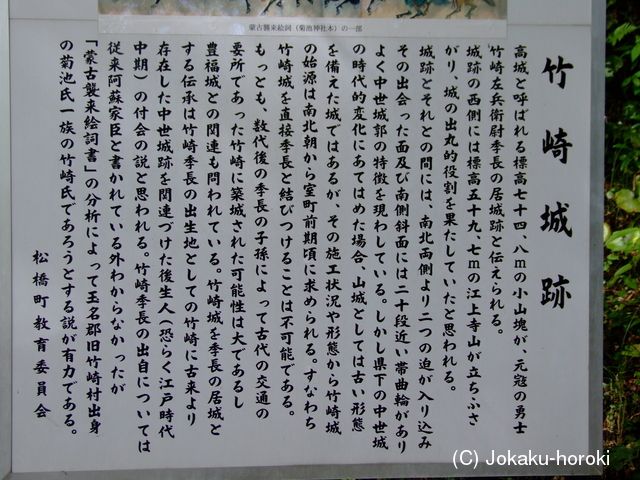 蒙古襲来絵詞(菊池神社本)の一部
竹崎城跡
高城と呼ばれる標高七十四、八mの小山塊が、元寇の勇士
竹崎左兵衛尉季長の居城跡と伝えられる。
城跡の西側には標高五十九、七mの江上寺山が立ちふさ
がり、城の出丸的役割を果たしていたと思われる。
城跡とそれとの間には、南北両側より二つの迫が入り込み
その出会った面及び南側斜面には二十段近い帯曲輪があり
よく中世城郭の特徴を現わしている。しかし県下の中世城
の時代的変化にあてはめた場合、山城としては古い形態
を備えた城ではあるが、その施工状況や形態から竹崎城
の始源は南北朝から室町前期頃に求められる。すなわち
竹崎城を直接季長と結びつけることは不可能である。
もっとも、数代後の季長の子孫によって古代の交通の
要所であった竹崎に築城された可能性は大であるし
豊福城との関連も問われている。竹崎城を季長の居城と
する伝承は竹崎季長の出生地としての竹崎に古来より
存在した中世城跡を関連づけた後生人(恐らく江戸時代
中期)の付会の説と思われる。竹崎季長の出自については
従来阿蘇家臣と書かれている外わからなかったが
「蒙古襲来絵詞書」の分析によって玉名郡旧竹崎村出身
の菊池氏一族の竹崎氏であろうとする説が有力である。
松橋町教育委員会
(C) Jokaku-horoki